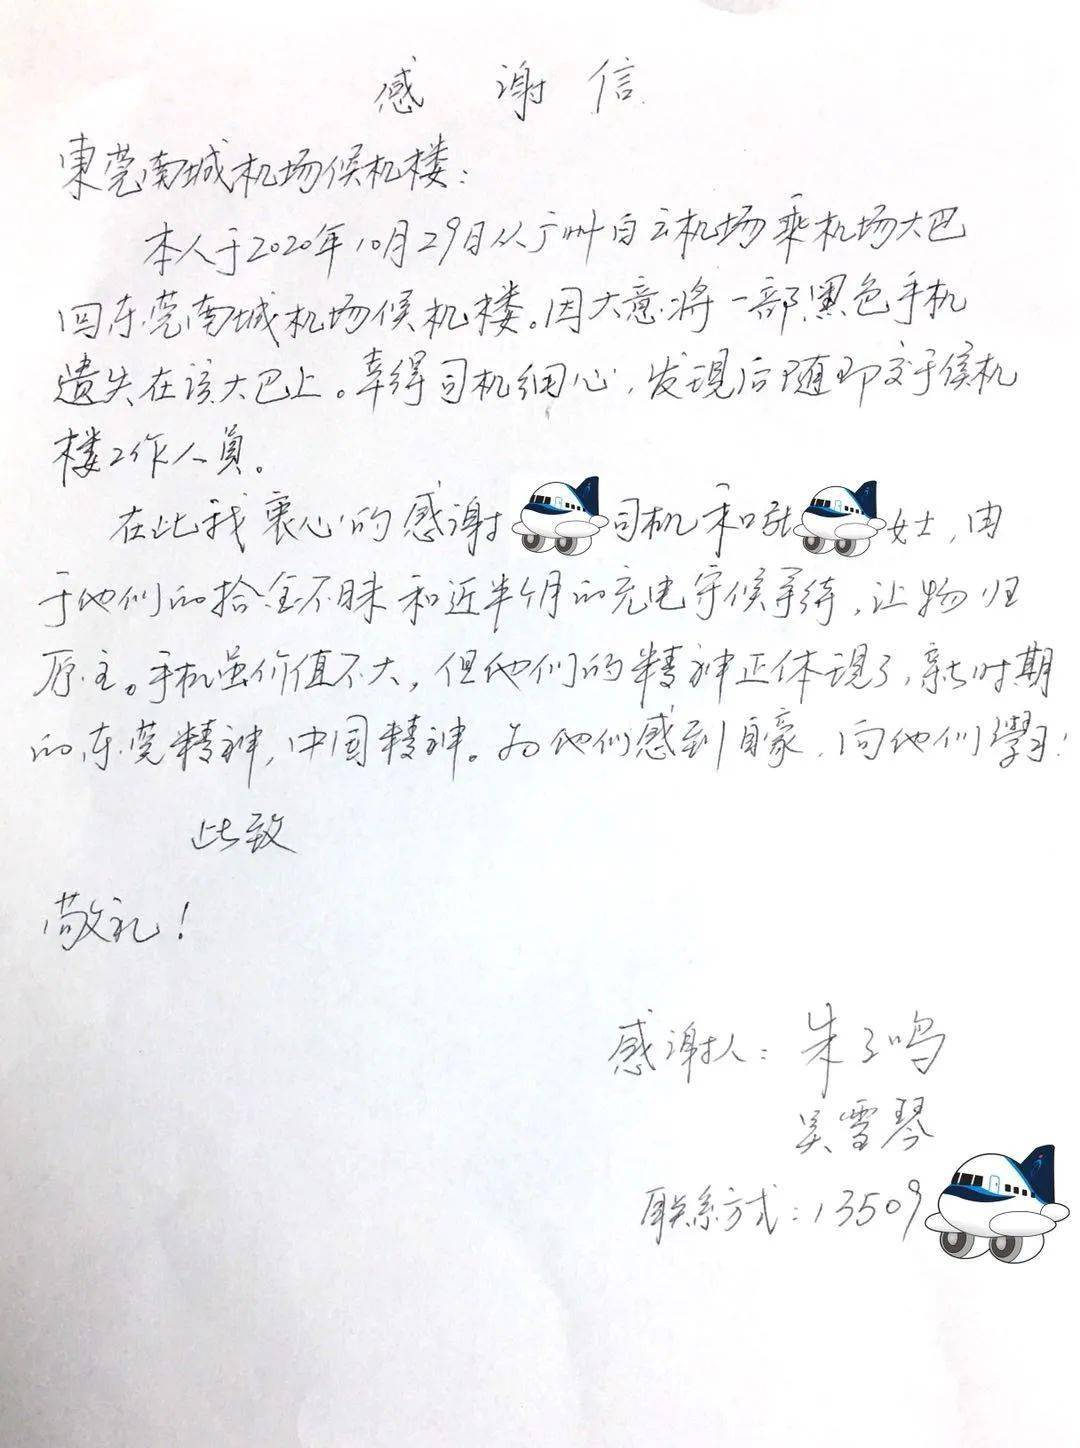 感谢信
東莞南城机场候机楼：
本人于2020年10月29日从广州白云机场乘机场大巴
回东莞南城机场候机楼。因大意将一部黑色手机
遗失在该大巴上。幸得司机细心，发现后随即交于候机
楼工作人員。
在此我衷心的感谢司机和张女士，由
于他们的拾金不昧和近半个月的充电守候等待，让物归
原主。手机虽价值不大，但他们的精神正体現了，新时期
的东莞精神，中国精神。为他们感到自豪，向他们學习！
此致
敬礼！
感谢人：朱了鸣
吴雪琴
联系方式：13509